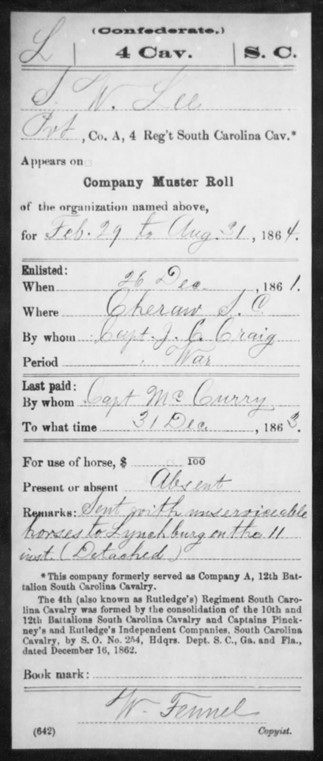 (Confederate.)
L | 4 Cav. | S. C.
S. W. Lee
Pvt, Co. A, 4 Reg't South Carolina Cav.*
Appears on
Company Muster Roll
of the organization named above,
for Feb. 29 to Aug. 31, 1864.
Enlisted:
When 26 Dec, 1861.
Where Cheraw S. C.
By whom Capt. J. C. Craig
Period War
Last paid:
By whom Capt McCurry
To what time 31 Dec, 1863.
For use of horse, $ 100
Present or absent Absent
Remarks: Sent with unserviceable
horses to Lynchburg on the 11
inst. (Detached)
*This company formerly served as Company A, 12th Bat-
talion South Carolina Cavalry.
The 4th (also known as Rutledge's) Regiment South Caro-
lina Cavalry was formed by the consolidation of the 10th and
12th Battalions South Carolina Cavalry and Captains Pinck-
ney's and Rutledge's Independent Companies, South Carolina
Cavalry, by S. O. No. 254, Hdqrs. Dept. S. C., Ga. and Fla.,
dated December 16, 1862.
Book mark:
W. Fennel
(642) Copyist.